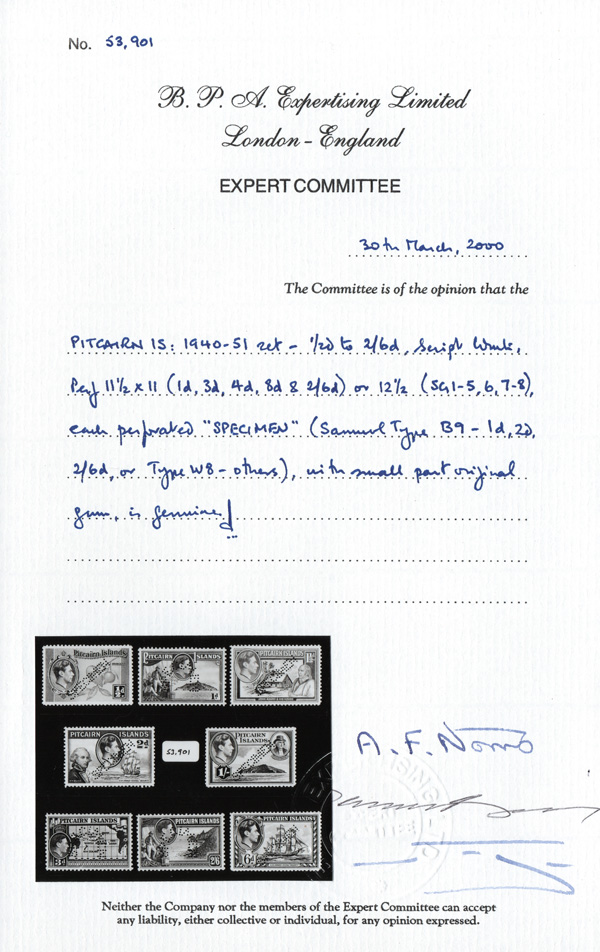 No. 53,901
B. P. A. Expertising Limited
London - England
EXPERT COMMITTEE
30th March, 2000
The Committee is of the opinion that the
PITCAIRN IS: 1940-51 set - ½d to 2/6d, Script Wmk,
Perf 11½ x 11 (1d, 3d, 4d, 8d & 2/6d) or 12½ (SG1-5, 6, 7-8),
each perforated "SPECIMEN" (Samuel Type B9 - 1d, 2d,
2/6d, or Type W8 - others), with small part original
gum, is genuine
Pitcairn Islands ½d
PITCAIRN ISLANDS 1d
PITCAIRN ISLANDS 1½d
PITCAIRN ISLANDS 2d
53,901
PITCAIRN ISLANDS 1/-
PITCAIRN ISLANDS 3d
PITCAIRN ISLANDS 2/6
PITCAIRN ISLANDS 6d
A. F. Norris
Neither the Company nor the members of the Expert Committee can accept
any liability, either collective or individual, for any opinion expressed.